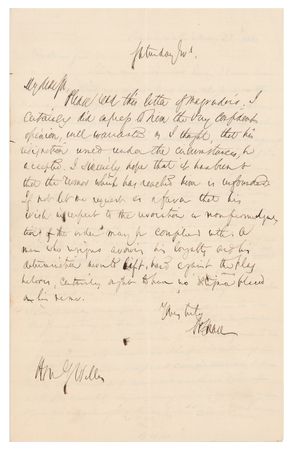 Saturday
My dear Sir,
Please read this letter of Magruder's. I
certainly did express to him the very confident
opinion, well warranted as I thought that his
resignation would under the circumstances, be
accepted. I sincerely hope that it has been &
that the rumor which has reached him is unfounded
If not let me request as a favor that his
wish in respect to the revocation or nonpromulga
tion of the order may be complied with. A
man who resigns avowing his loyalty and his
determination never to lift hand against the flag
believes, certainly ought to have no stigma placed
on his name.
Yours truly
Hon G Welles